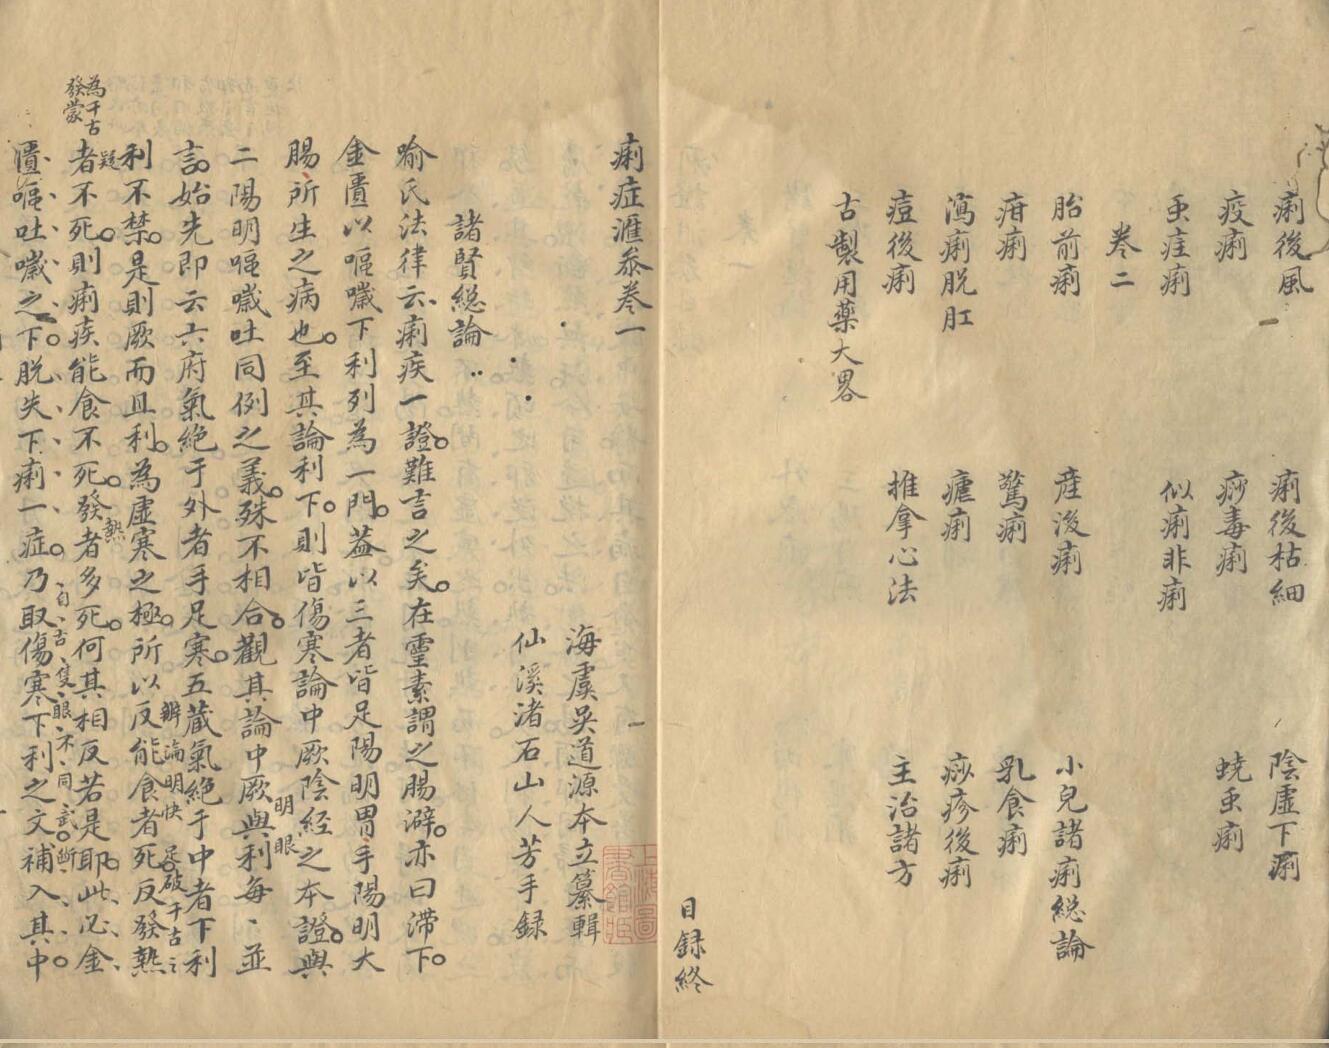 痢後風　痢後枯細　陰虛下痢
疫痢　痧毒痢　蟯虫痢
虫疰痢　似痢非痢
卷二
胎前痢　産後痢　小兒諸痢総論
疳痢　驚痢　乳食痢
瀉痢脱肛　瘧痢　痧疹後痢
痘後痢　推拿心法　主治諸方
古製用藥大畧
目録終
痢症滙叅卷一
海虞吳道源本立纂輯
仙溪渚石山人芳手録
諸賢総論
喻氏法律云痢疾一證難言之矣在靈素謂之腸澼亦曰滯下
金匱以嘔噦下利列為一門葢以三者皆足陽明胃手陽明大
腸所生之病也至其論利下則皆傷寒論中厥陰経之本證與
二陽明嘔噦吐同例之義殊不相合觀其論中厥與利每〻並
明眼
言始先即云六府氣絶于外者手足寒五藏氣絶于中者下利
辨論明快足破千古之
利不禁是則厥而且利為虛寒之極所以反能食者死反發熱
疑
者不死則痢疾能食不死發者多死何其相反若是耶此必金
熱
為千古
發蒙
匱嘔吐噦之下脱失下痢一症乃取傷寒下利之文補入其中
隻眼不同
上海圖
書館藏